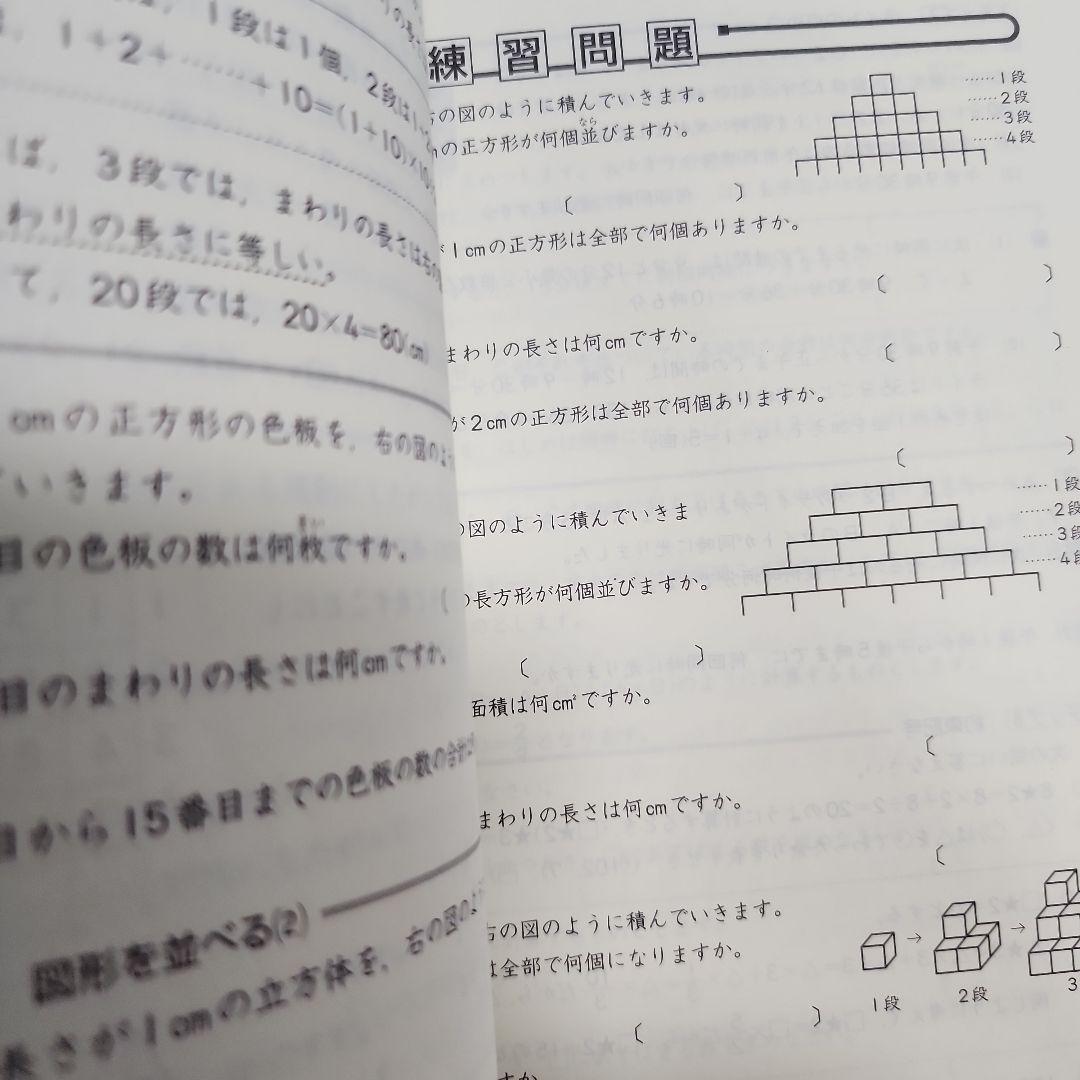 1段は1個，2段は1+2
1+2+……+10=(1+10)×10
ば，3段では，まわりの長さは
わりの長さに等しい。
て，20段では，20×4=80(cm)
cmの正方形の色板を，右の図のよう
いきます。
目の色板の数は何枚ですか。
目のまわりの長さは何cmですか。
目から15番目までの色板の数の合計は
図形を並べる(2)
長さが1cmの立方体を，右の図のよ
練習問題
右の図のように積んでいきます。
の正方形が何個並びますか。
なら
〔 〕
……1段
……2段
……3段
……4段
が1cmの正方形は全部で何個ありますか。
〔 〕
まわりの長さは何cmですか。
〔 〕
が2cmの正方形は全部で何個ありますか。
〔 〕
の図のように積んでいきま
の長方形が何個並びますか。
〔 〕
……1段
……2段
……3段
……4段
面積は何cm²ですか。
〔
まわりの長さは何cmですか。
〔
右の図のように積んでいきます。
は全部で何個になりますか。
〔 〕
→ →
1段 2段 3
すか